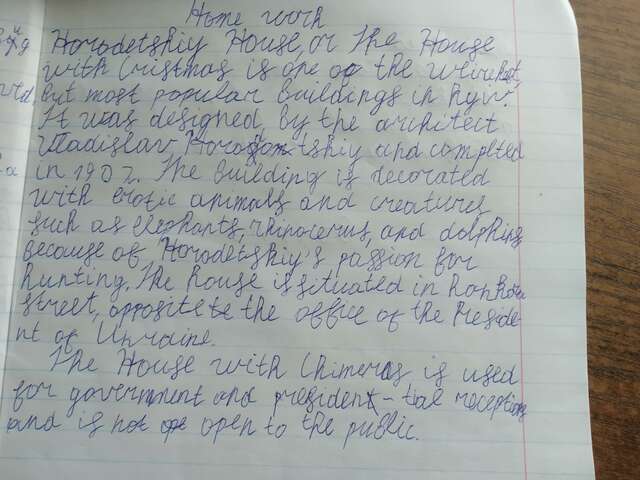 Home work
Horodetskiy House, or The House
with Cristmas is one of the weirhest,
but most popular buildings in Kyiv.
It was designed by the architect
Vladislav Horodetskiy and completed
in 1902. The building is decorated
with exotic animals and creatures
such as elephants, rhinocerus, and dolphins
because of Horodetskiy's passion for
hunting. The house is situated in bankova
street, opposite to the office of the Preside
nt of Ukraine.
The House with Chimeras is used
for government and president-tial receptions
and is not open to the public.